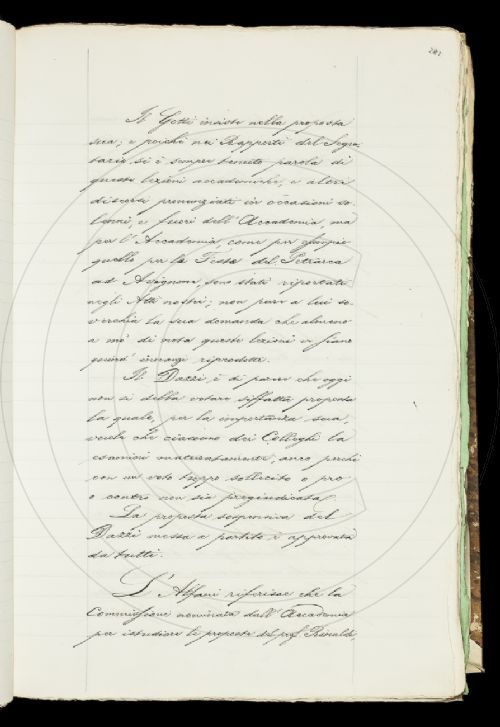 Il Gotti insiste nella proposta
sua; e poichè nei Rapporti del Segre-
tario si è sempre tenuto parola di
queste lezioni accademiche, e altri
discorsi pronunziati in occasioni so-
lenni, e fuori dell'Accademia, ma
per l'Accademia, come per esempio
quello per le Feste del Petrarca
ad Avignone, sono stati riportati
negli Atti nostri; non pare a lui so-
verchia la sua domanda che almeno
a mo' di nota queste lezioni si siano
quind' innanzi riprodotte.
Il Dazzi è di parere che oggi
non si debba votare siffatta proposta
la quale, per la importanza sua,
vuole che ciascuno dei Colleghi la
esamini maturatamente, anco perchè
con un voto troppo sollecito o pro
o contro non sia pregiudicata.
La proposta sospensiva del
Dazzi messa a partito è approvata
da tutti.
L'Alfani riferisce che la
Commissione nominata dall'Accademia
per istudiare le proposte del prof. Rinaldi,